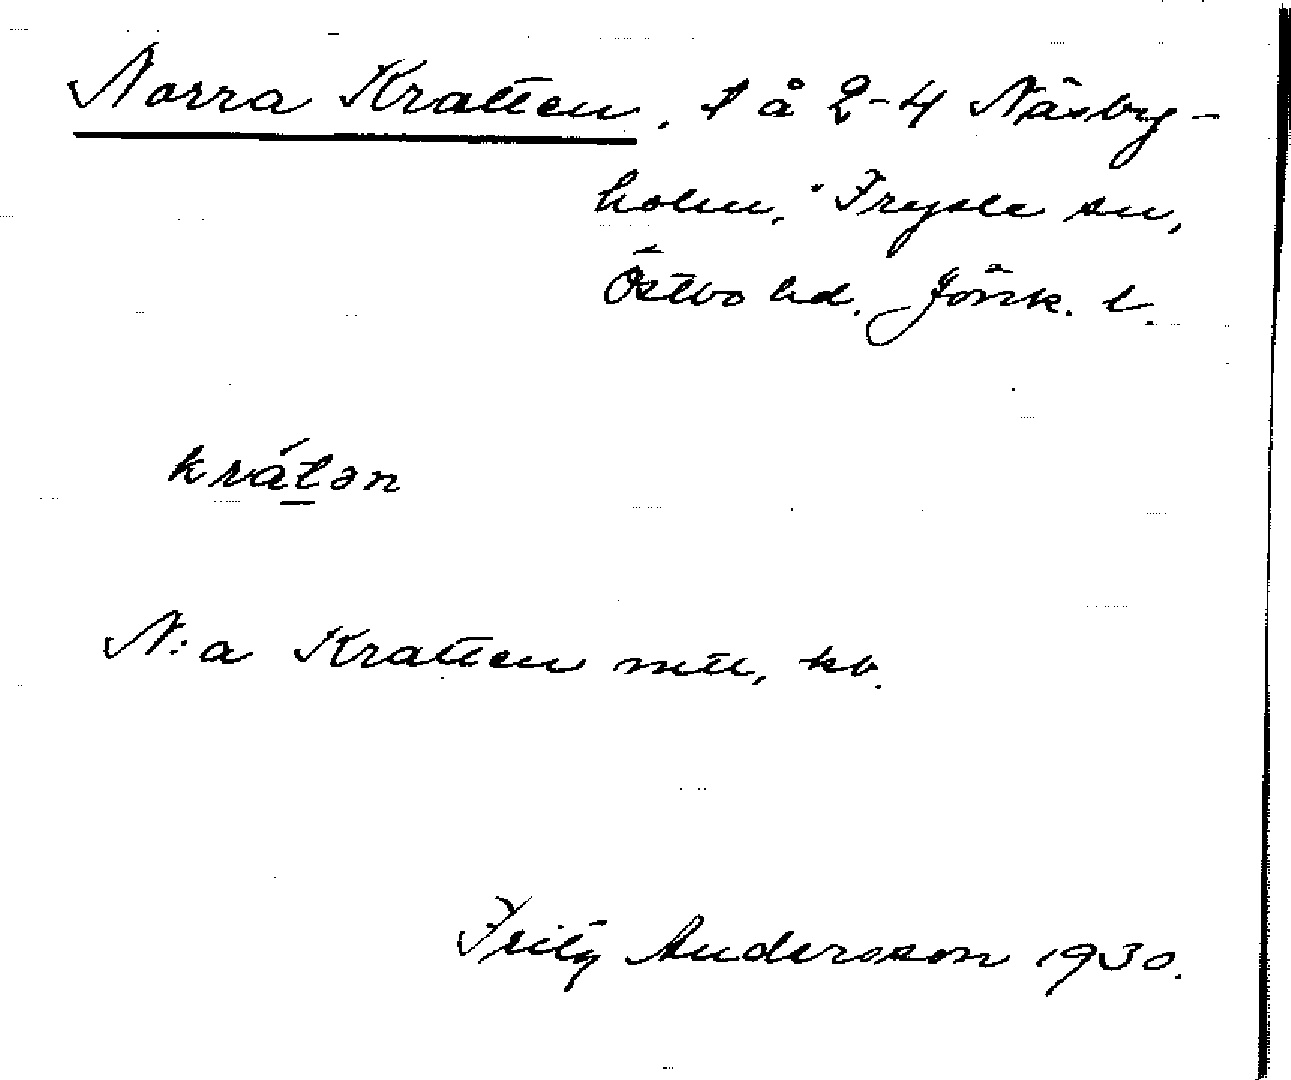 Norra Kratten. t å 2-4 Näsby-
holm, Frysle sn,
Östbo hd. Jönk. l.
krátən
N:a Kratten mtl, kb.
Fritz Andersson 1930.